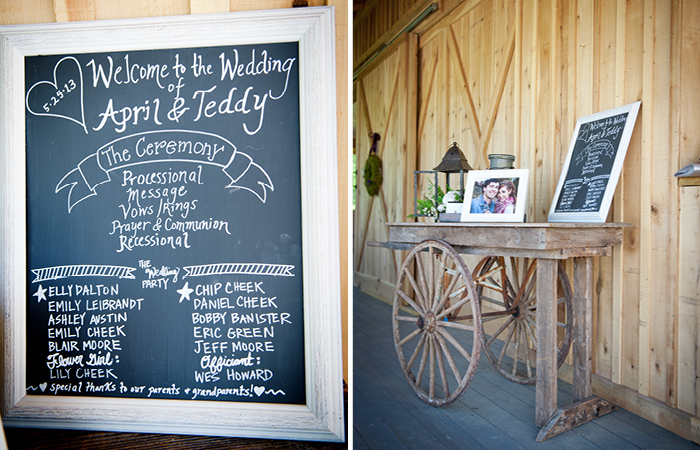 5·25·13
Welcome to the Wedding
of
April & Teddy
The Ceremony
Processional
Message
Vows/Rings
Prayer & Communion
Recessional
THE Wedding PARTY
ELLY DALTON
EMILY LEIBRANDT
ASHLEY AUSTIN
EMILY CHEEK
BLAIR MOORE
Flower Girl:
LILY CHEEK
CHIP CHEEK
DANIEL CHEEK
BOBBY BANISTER
ERIC GREEN
JEFF MOORE
Officiant:
WES HOWARD
special thanks to our parents & grandparents!
Welcome to the Wedding
of
April & Teddy
The Ceremony